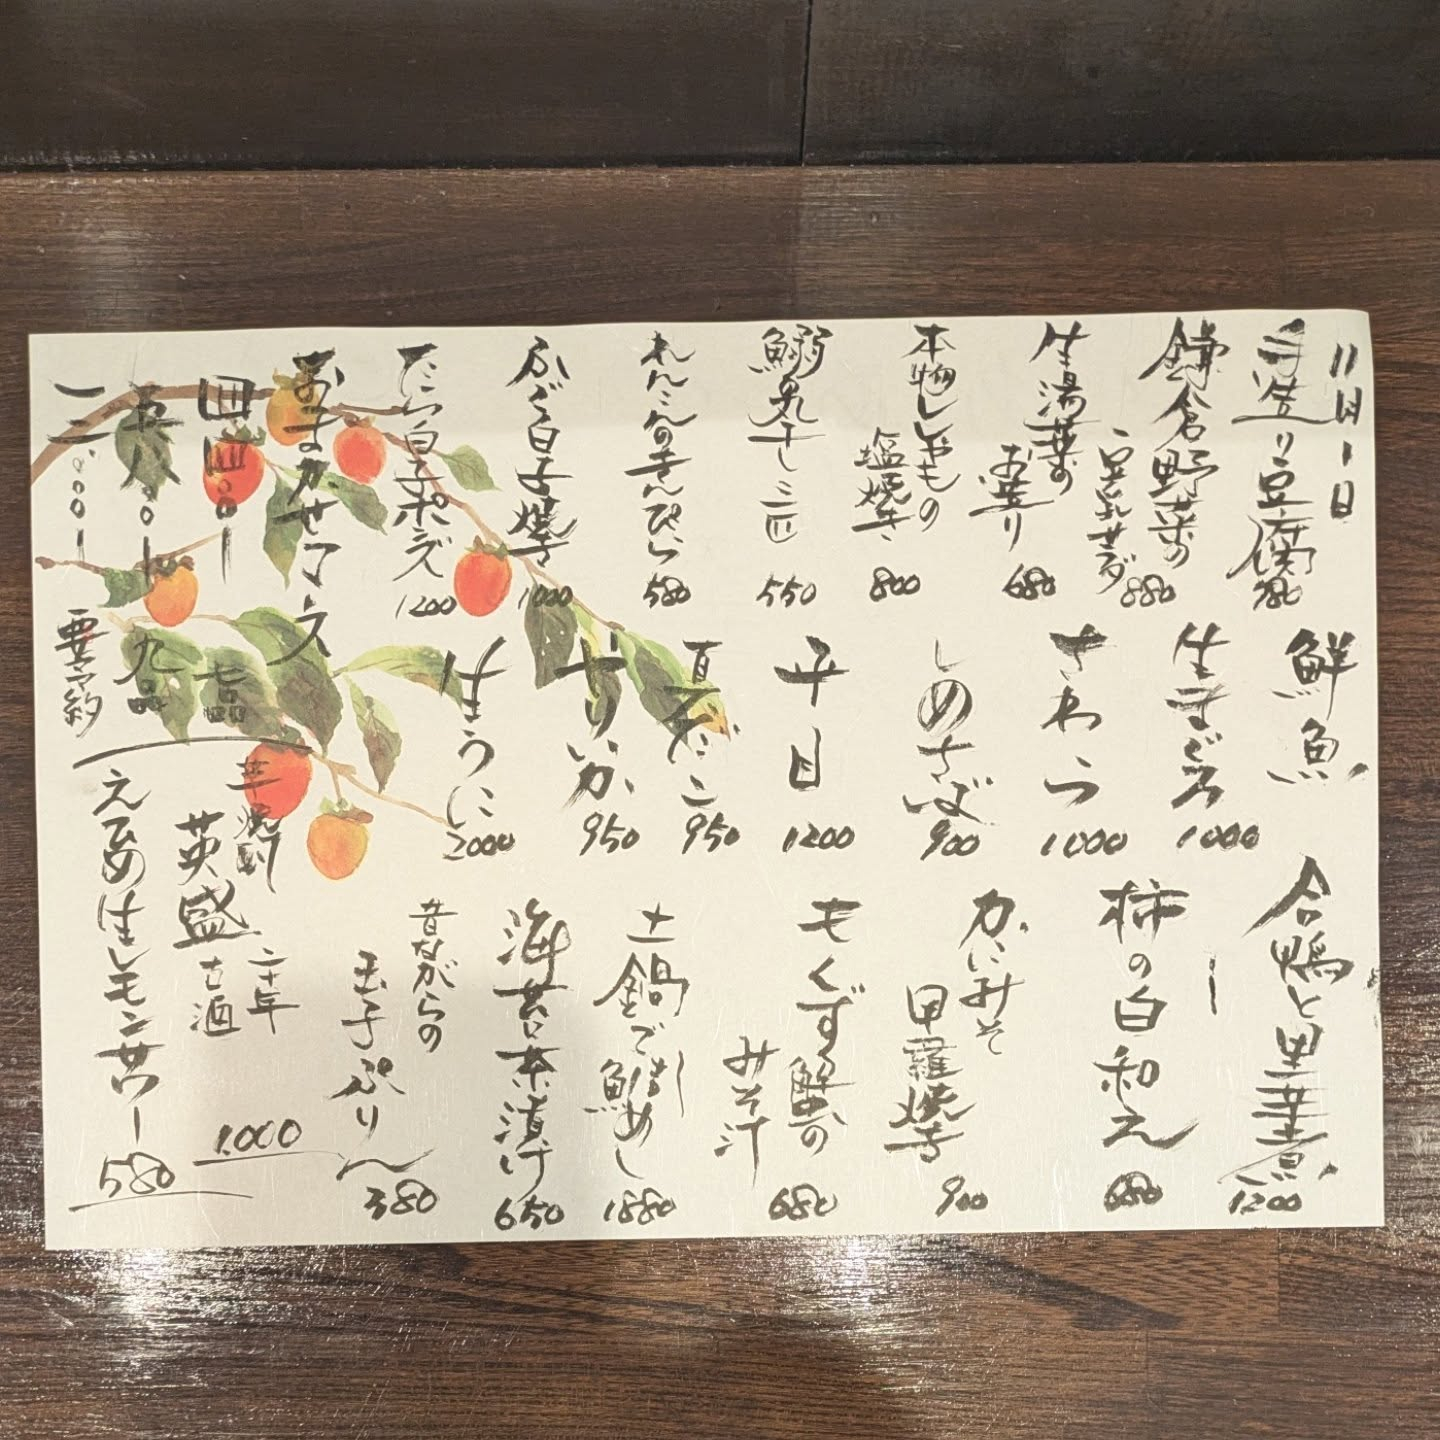 11月1日
手造り豆腐
780
鎌倉野菜の
豆乳サラダ
880
生湯葉の
お造り
680
本物ししゃもの
塩焼き
800
鰯の丸干し三匹
550
れんこんのきんぴら
580
ふぐ白子焼き
1000
たら白子ポン酢
1200
おまかせコース
四四〇〇ー
七品
五八〇〇ー
九品
一二〇〇〇ー
要予約
鮮魚
生まぐろ
1000
さわら
1000
しめさば
900
平目
1200
真だこ
950
やりいか
950
生うに
2000
合鴨と里芋煮
1200
柿の白和え
680
かにみそ
甲羅焼き
900
もくず蟹の
みそ汁
680
土鍋で鯛めし
1880
海苔茶漬け
650
昔ながらの
玉子ぷりん
380
芋焼酎
英盛
二十年
古酒
1.000
えひめ生レモンサワー
580